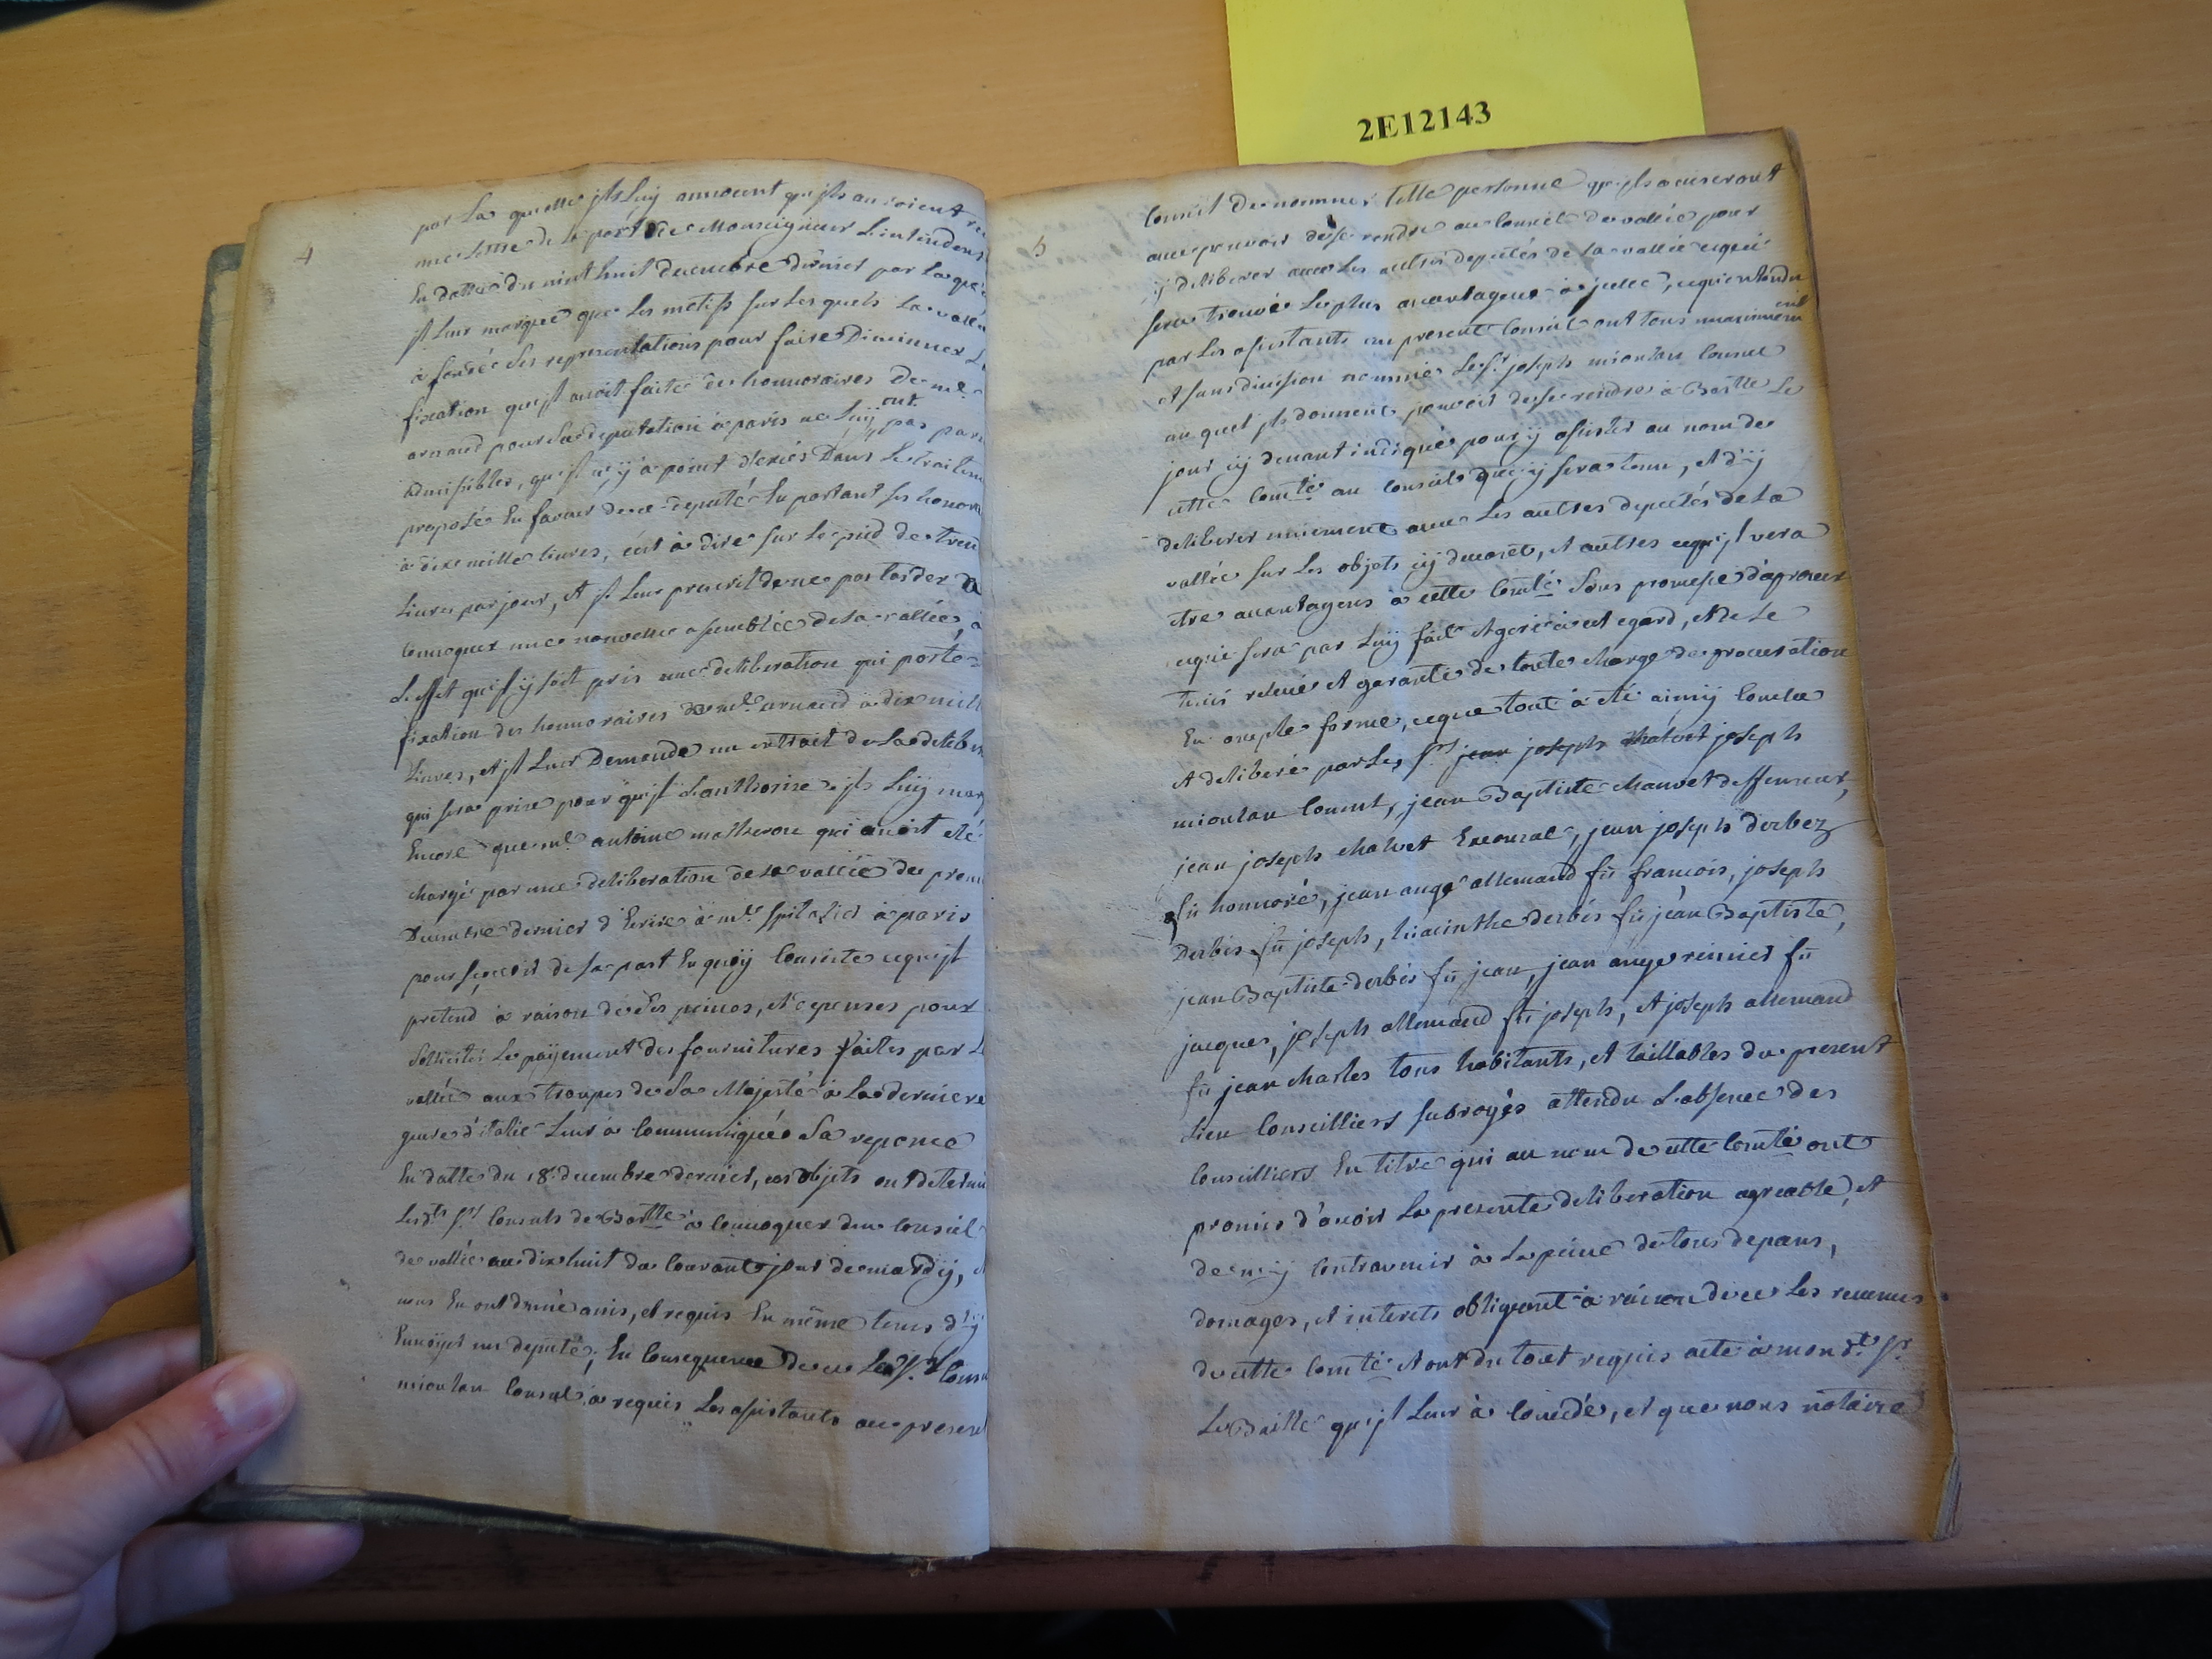 2E12143
4
par la quelle jls luy annoncent qu'jls auroient re
une lettre de la part de Monseigneur L'intendent
En datte du vint huit decembre dernier par laque
jl leur marque que les motifs sur les quels la vallé
a fondé ses representations pour faire Diminuer L
fixation qu'jl avoit faite des honnoraires De me.
arnaud pour sa deputation à paris ne luy ont pas paru
admissibles, qu'jl n'y à point d'exés Dans le traitem
proposé En faveur de ce deputé En portant ses honora
à dix mille livres, c'est à dire sur le pied de tren
Livres par jour, et jl leur prescrit de ne pas tarder De
Convoquer une nouvelle assemblée de la vallée, à
L'effet qu'jl y soit pris une deliberation qui porte
fixation des honnoraires de me. arnaud à dix mill
livres, et jl leur Demande un extrait de la delibe
qui sera prise pour qu'jl L'authorise, jls luy mar
Encore que me. antoine matheron qui avoit eté
chargé par une deliberation de la vallée du prem
Decembre dernier d'Ecrire à mr. spitalier à paris
pour sçavoir de sa part En quoy Consiste ce qu'jl
pretend à raison de ses peines, et depenses pour
solliciter le payement des fournitures faites par L
vallée aux troupes de Sa Majesté à la derniere
guerre d'italie Leur à Communiqué Sa reponce
En datte du 18 decembre dernier, ces objets ont determi
lesdts. srs. Consuls de Bartte. à Convoquer du Conseil
de vallée au dix huit du Courant jour de mardy, et
nous En ont donné avis, et requis En même tems d'y
Envoyer un deputé; En Consequence de ce Led. sr.
mioulan Consul à requis Les assistants au present
5
Conseil De nommer telle personne qu'jls aviseront
avec pouvoir de se rendre au Conseil de vallée pour
y deliberer avec les autres deputés de la vallée ce qui
sera trouvé le plus avantageux à jcelle, ce qu'entendu
par les assistants au present Conseil ont tous unanimement
et sans division nommé Le sr. joseph mioulan Consul
au quel jls donnent pouvoir de se rendre à Bartte. Le
jour cy devant indiqué pour y assister au nom de
cette Comté. au Conseil qui y sera tenu, et d'y
deliberer uniement avec les autres deputés de la
vallée sur les objets cy devant, et autres ce qu'jl vera
etre avantageux à cette Comté. sous promesse d'aprouver
ce qui sera par luy fait et geré à cet egard, et de le
tenir relevé et garanti de toute charge de procuration
En ample forme, ce que tout à eté ainsy Conclu
et deliberé par les srs. joseph
mioulan Consul, jean Baptiste chauvet deffenseur,
jean joseph chalvet Exconsul, jean joseph derbez
fû honnoré, jean ange allemand fû francois, joseph
Derbés fû joseph, hiacinthe derbés fû jean Baptiste,
jean Baptiste derbés fû jean, jean ange reinier fû
jacques, joseph allemand fû joseph, et joseph allemand
fû jean charles tous habitants, et taillables du present
Lieu Conseilliers subrogés attendu L'absence des
Conseilliers En titre qui au nom de cette Comté. ont
promis d'avoir La presente deliberation agreable, et
de n'y Contrevenir à la peine de tous depans,
domages, et interets obligeant à raison de ce Les revenus
de cette Comté. et ont du tout requis acte à mondt. sr.
Le Baille qu'jl leur à Concedé, et que nous notaire